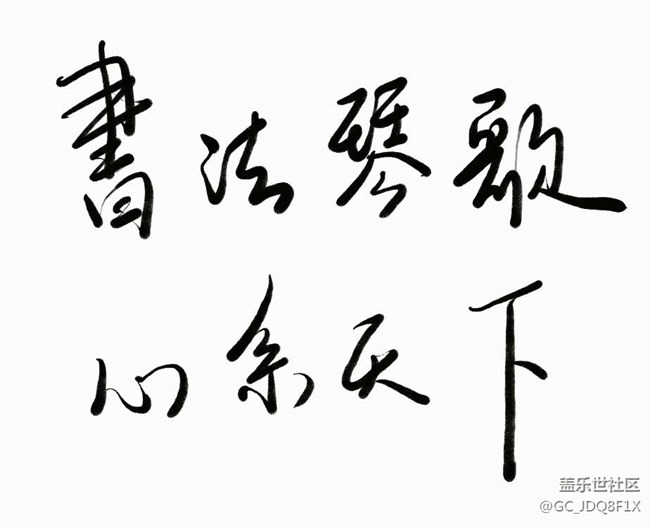 書法琴歌
心系天下
盖乐世社区
@GC_JDQ8F1X